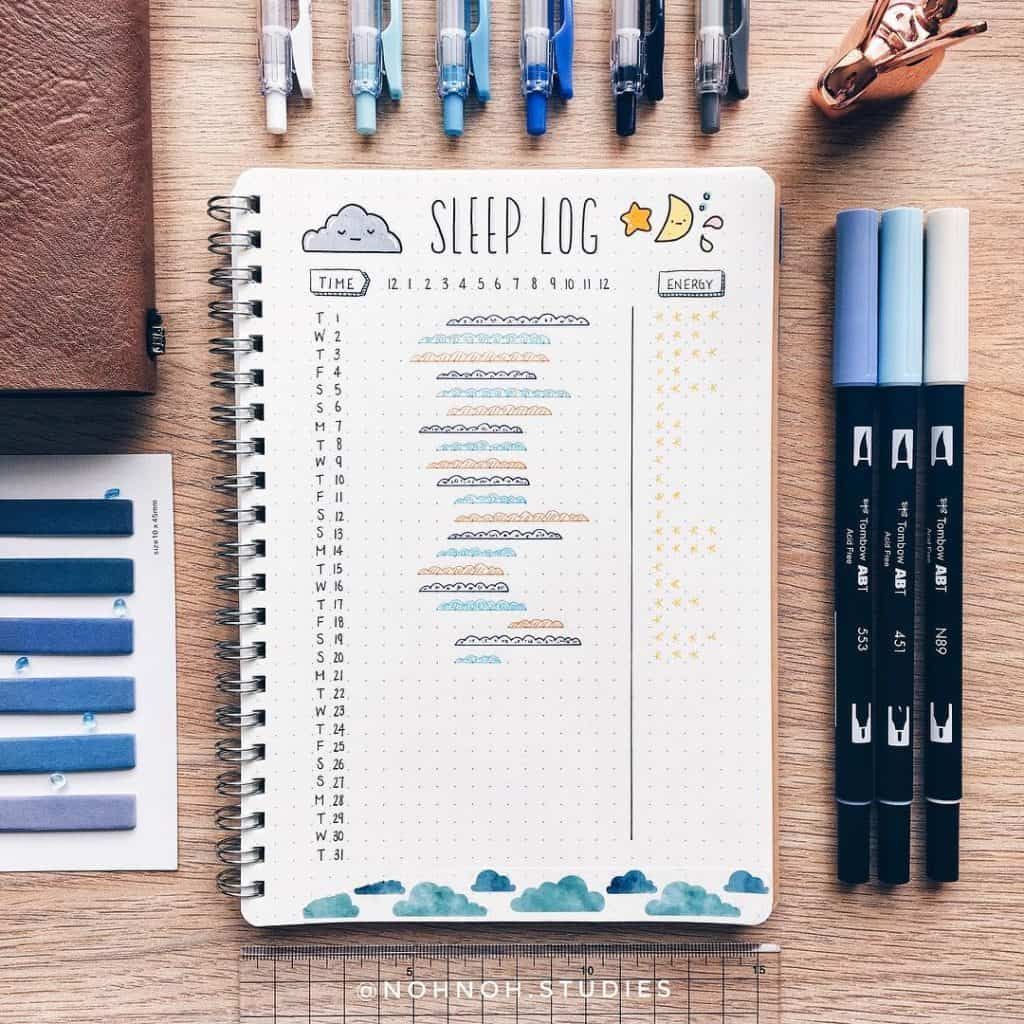 SLEEP LOG
TIME 12 1 2 3 4 5 6 7 8 9 10 11 12 ENERGY
T 1
W 2
T 3
F 4
S 5
S 6
M 7
T 8
W 9
T 10
F 11
S 12
S 13
M 14
T 15
W 16
T 17
F 18
S 19
S 20
M 21
T 22
W 23
T 24
F 25
S 26
S 27
M 28
T 29
W 30
T 31
size 10 x 45mm
Tombow ABT 553
Acid Free
Tombow ABT 451
Acid Free
Tombow ABT N89
Acid Free
5 10 15
@NOHNOH.STUDIES